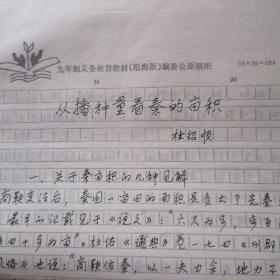 九年制义务教育教材（沿海版）编委会原稿纸
24×26=624
10
20
从播种量看秦的亩积
杜绍顺
一、关于秦亩积的几种见解
商鞅变法后，秦国一亩田的面积是多大？先秦
最早的记载见于《说文》："六尺为步，步百
四十步为亩"。杜佑《通典》卷一七四《州郡
风俗》也说："商鞅佐秦，以一夫力余，地力不